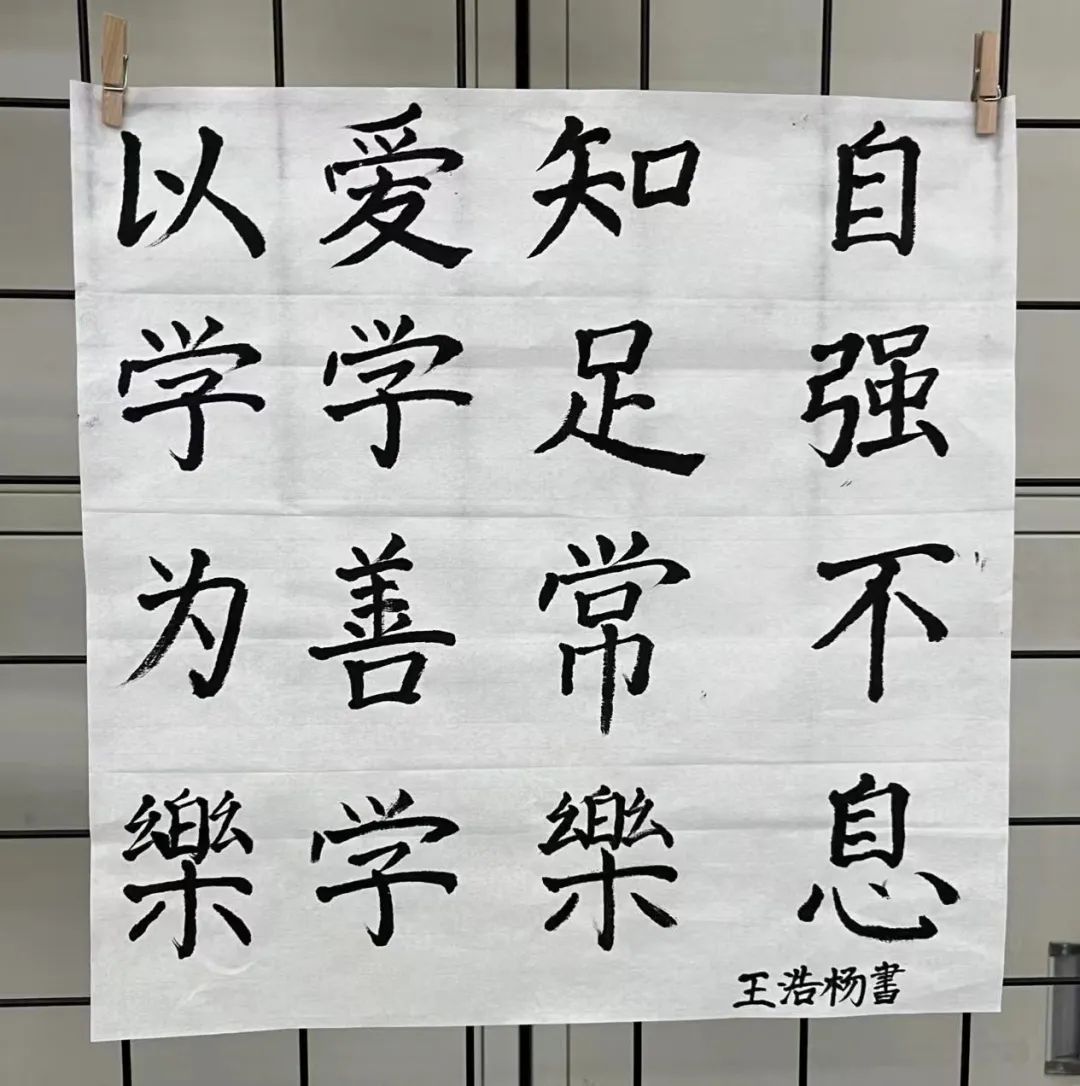 以学为樂
爱学善学
知足常樂
自强不息
王浩杨書